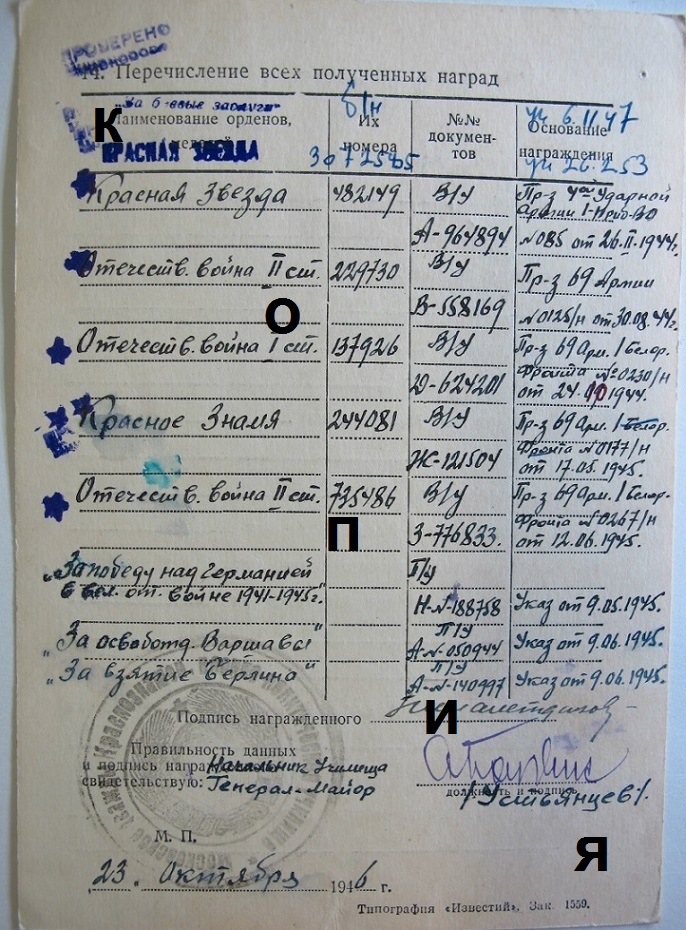 ПРОВЕРЕНО
14. Перечисление всех полученных наград
"За боевые заслуги" б/н Ук 6.11.47
Наименование орденов, медалей Их номера №№ документов Основание награждения
КРАСНАЯ ЗВЕЗДА 3072585 Ук 26.2.53
К
Красная Звезда 482149 В/У Пр-з 4ой Ударной
Армии 1-Приб-ВО
А-964894 №085 от 26.II-1944г.
Отечеств. война II ст. 229730 В/У Пр-з 69 Армии
О В-558169 №0125/н от 30.08.44г.
Отечеств. война I ст. 137926 В/У Пр-з 69 Арм. 1 Белор.
Фронта №0230/н
D-624201 от 24. 1944.
Красное Знамя 244081 В/У Пр-з 69 Арм. 1 Белор.
Фронта №0177/н
Ж-121504 от 17.05.1945.
Отечеств. война II ст. 735486 В/У Пр-з 69 Арм. 1 Белор.
Фронта №0267/н
П З-776833. от 12.06.1945.
"За победу над Германией П/У
в вел. от. войне 1941-1945г." Н-№-188758 Указ от 9.05.1945.
П/У
"За освобожд. Варшавы" А-№-050944 Указ от 9.06.1945.
П/У
"За взятие Берлина" А-№-140997 Указ от 9.06.1945.
Подпись награжденного
И
Правильность данных
и подпись награжденного Начальник Училища
свидетельствую: Генерал-Майор
/Устьянцев/.
должность и подпись
М. П.
Я
„23„ Октября 1946 г.
Типография «Известий». Зак. 1559.